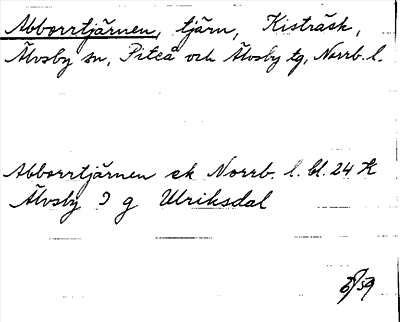 Abborrtjärnen, tjärn, Kisträsk,
Älvsby sn, Piteå och Älvsby tg, Norrb. l.
Abborrtjärnen ek Norrb. l. bl. 24
Älvsby 9 g Ulriksdal